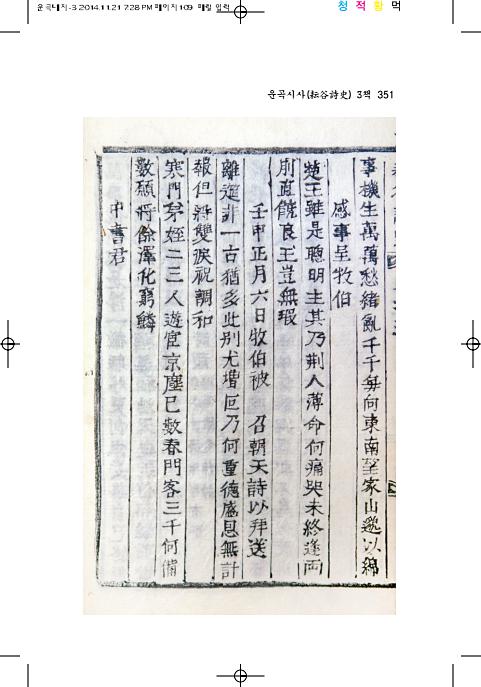 운곡대지-3 2014.11.21 7:28 PM 페이지109 매일 입력
청 적 황 먹
운곡시사(耘谷詩史) 3책 351
事機生萬萬愁緒亂千千每向東南望家山邈以綿
感事呈牧伯
楚王雖是聰明主其乃荆人薄命何痛哭未終逢兩
刖直饒良玉豈無瑕
壬甲正月六日牧伯被 召朝天詩以拜送
離筵非一古猶多此別尤堪叵乃何重德盛恩無計
報但將雙淚祝調和
寒門茅姪二三人遊宦京塵已數春門客三千何備
數願將餘澤化窮鱗
中書君